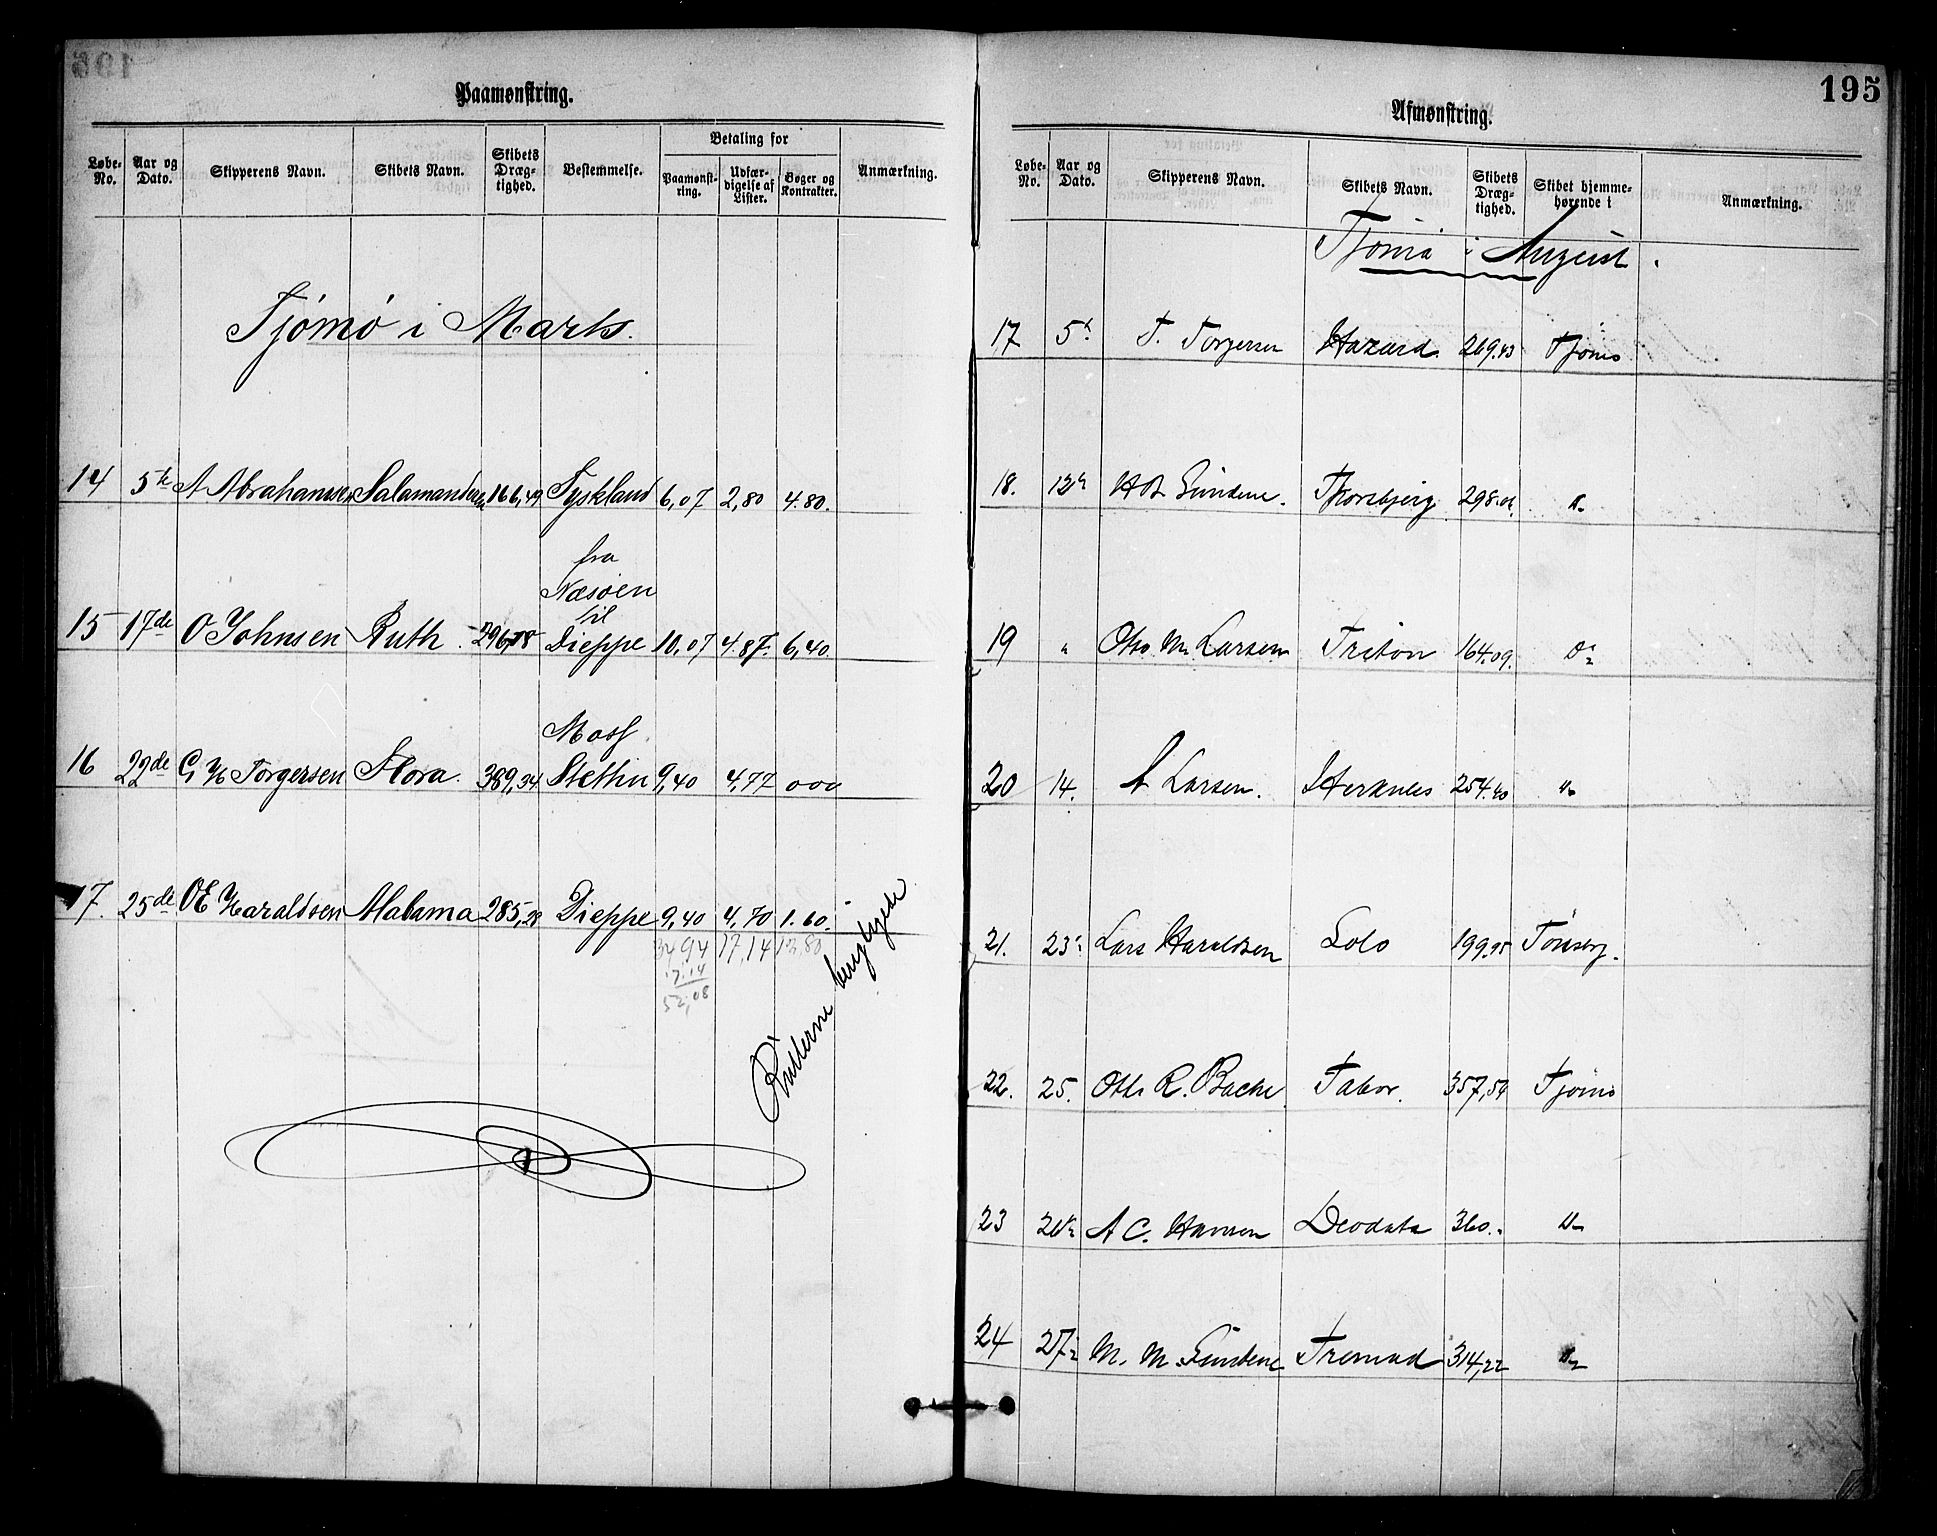 Paamønstring.
Løbe-No. Aar og Dato. Skipperens Navn. Skibets Navn. Skibets Dræg-tighed. Bestemmelse. Betaling for Paamønst-ring. Udfær-digelse af Lister. Bøger og Kontrakter. Anmærkning.
Tjömö i Marts.
14 5te A Abrahamsen Salamander 166,49 Tyskland 6,07 2,80 4.80.
fra
Næsöen
til
15 17de O Johnsen Ruth 296,18 Dieppe 10,07 4.87. 6,40.
Moss
16 22de G H Torgersen Flora. 389,34 Stettin 9,40 4,77 000
17. 25de OE Haraldsen Alabama 285,28 Dieppe 9,40 4,70 1.60.
34 94 17,14 12,80
17.14
52,08
Rullerne
195
Afmønstring.
Løbe-No. Aar og Dato. Skipperens Navn. Skibets Navn. Skibets Dræg-tighed. Skibet hjemme-hørende i Anmærkning.
Tjömö i August.
17 5t T. Torgersen Hazard 269.43 Tjömö
18. 12te Sundene. Thorsbjerg 298.
19 " Otto M. Larsen Triton 164.09. Do
20 14. A Larsen. Herkules 254.40 Do
21. 23 Lars Haraldsen Solo 199.95 Tönsberg.
22. 25. Otto R. Bache Tabor. 357,56 Tjömö
23 A C. Hansen Deodata 360. Do
24 27 M. M. Sundene Fremad 314,22 Do